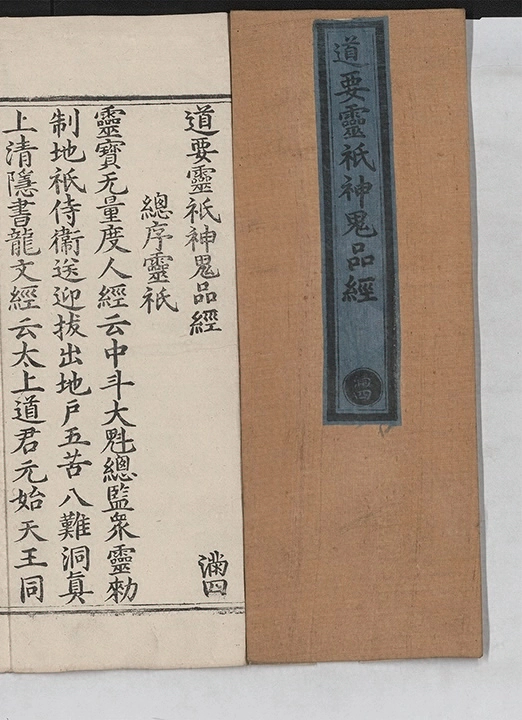 道要靈祇神鬼品經
滿四
道要靈祇神鬼品經 滿四
總序靈祇
靈寶无量度人經云中斗大魁總監衆靈勑
制地祇侍衞送迎拔出地戶五苦八難洞眞
上清隱書龍文經云太上道君元始天王同